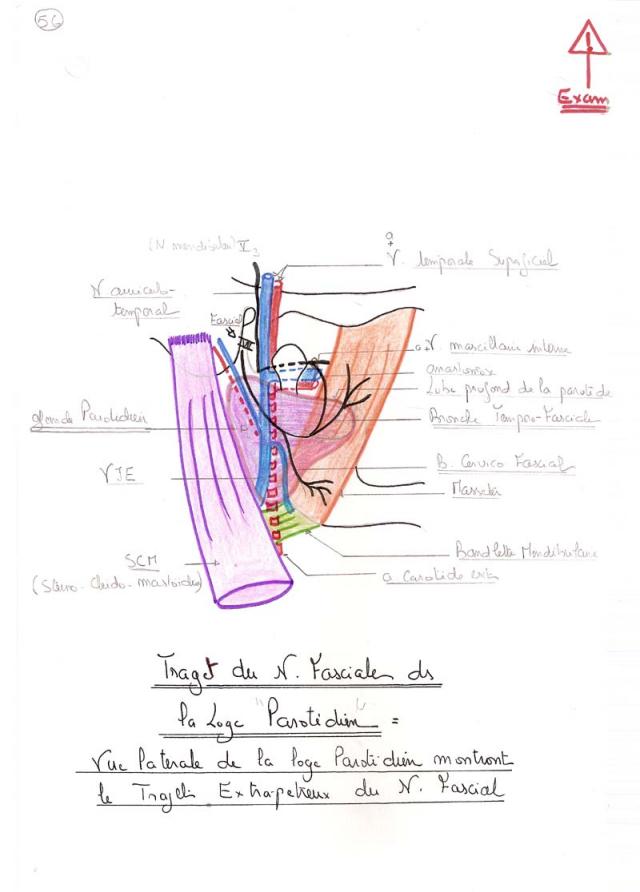 56
Exam
(N mendibulai) V3
a
+
V. temporale Superficiel
N auriculo-
temporal
Fascial
VII
a+V. maxcillaire interne
anastomose
Lobe profond de la parotide
Branche Temporo-Fasciale
glande Parotidien
B. Cervico Fascial
VJE
Masséter
SCM
(Sterno-cleido-mastoidien)
Bandlette Mandibulaire
a Carotide ext
Trajet du N. Fasciale ds
la Loge "Parotidien" =
Vue laterale de la loge Parotidien montront
le Trajet Extrapetreux du N. Fascial